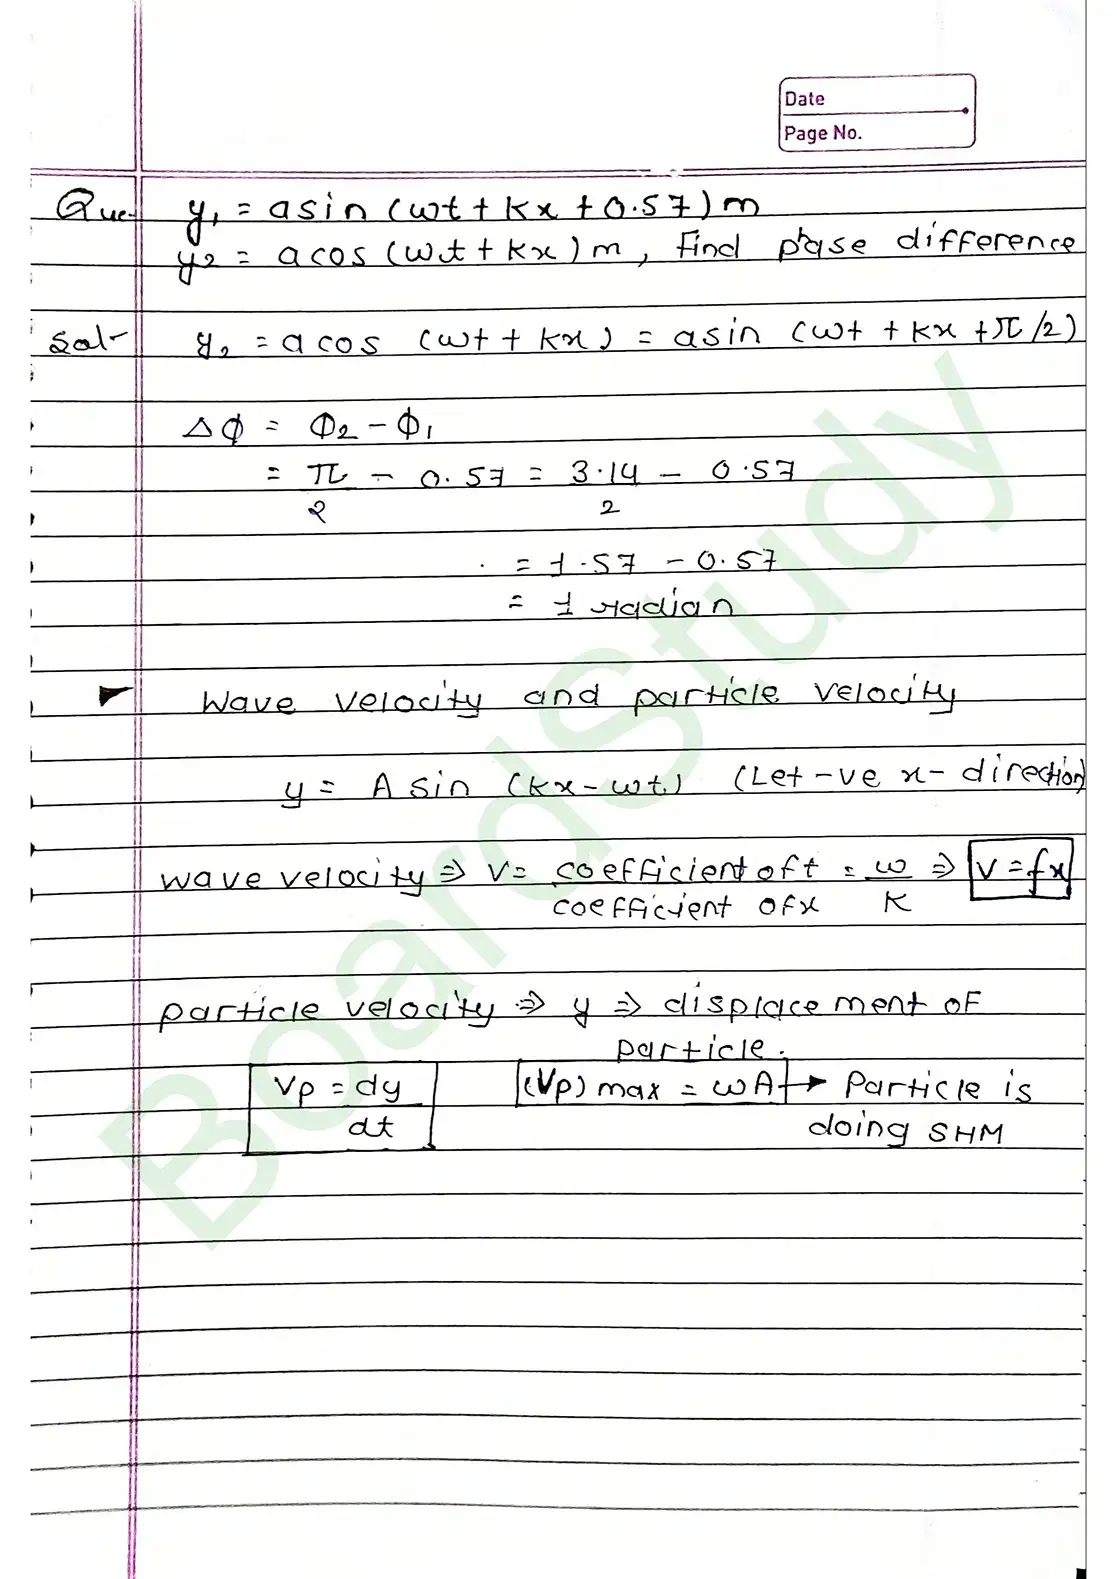 Date
Page No.
Que- y₁ = asin (ωt + kx + 0.57) m
y₂ = a cos (ωt + kx) m, Find phase difference
Sol- y₂ = a cos (ωt + kx) = a sin (ωt + kx + π/2)
Δϕ = ϕ₂ - ϕ₁
= π/2 - 0.57 = 3.14/2 - 0.57
= 1.57 - 0.57
= 1 radian
Wave velocity and particle velocity
y = A sin (kx - ωt) (Let -ve x- direction)
wave velocity ⇒ v = coefficient of t / coefficient of x = ω/k ⇒ v = fx
particle velocity ⇒ y ⇒ displacement of
particle.
Vp = dy/dt (Vp) max = ωA → Particle is
doing SHM
BoardStudy